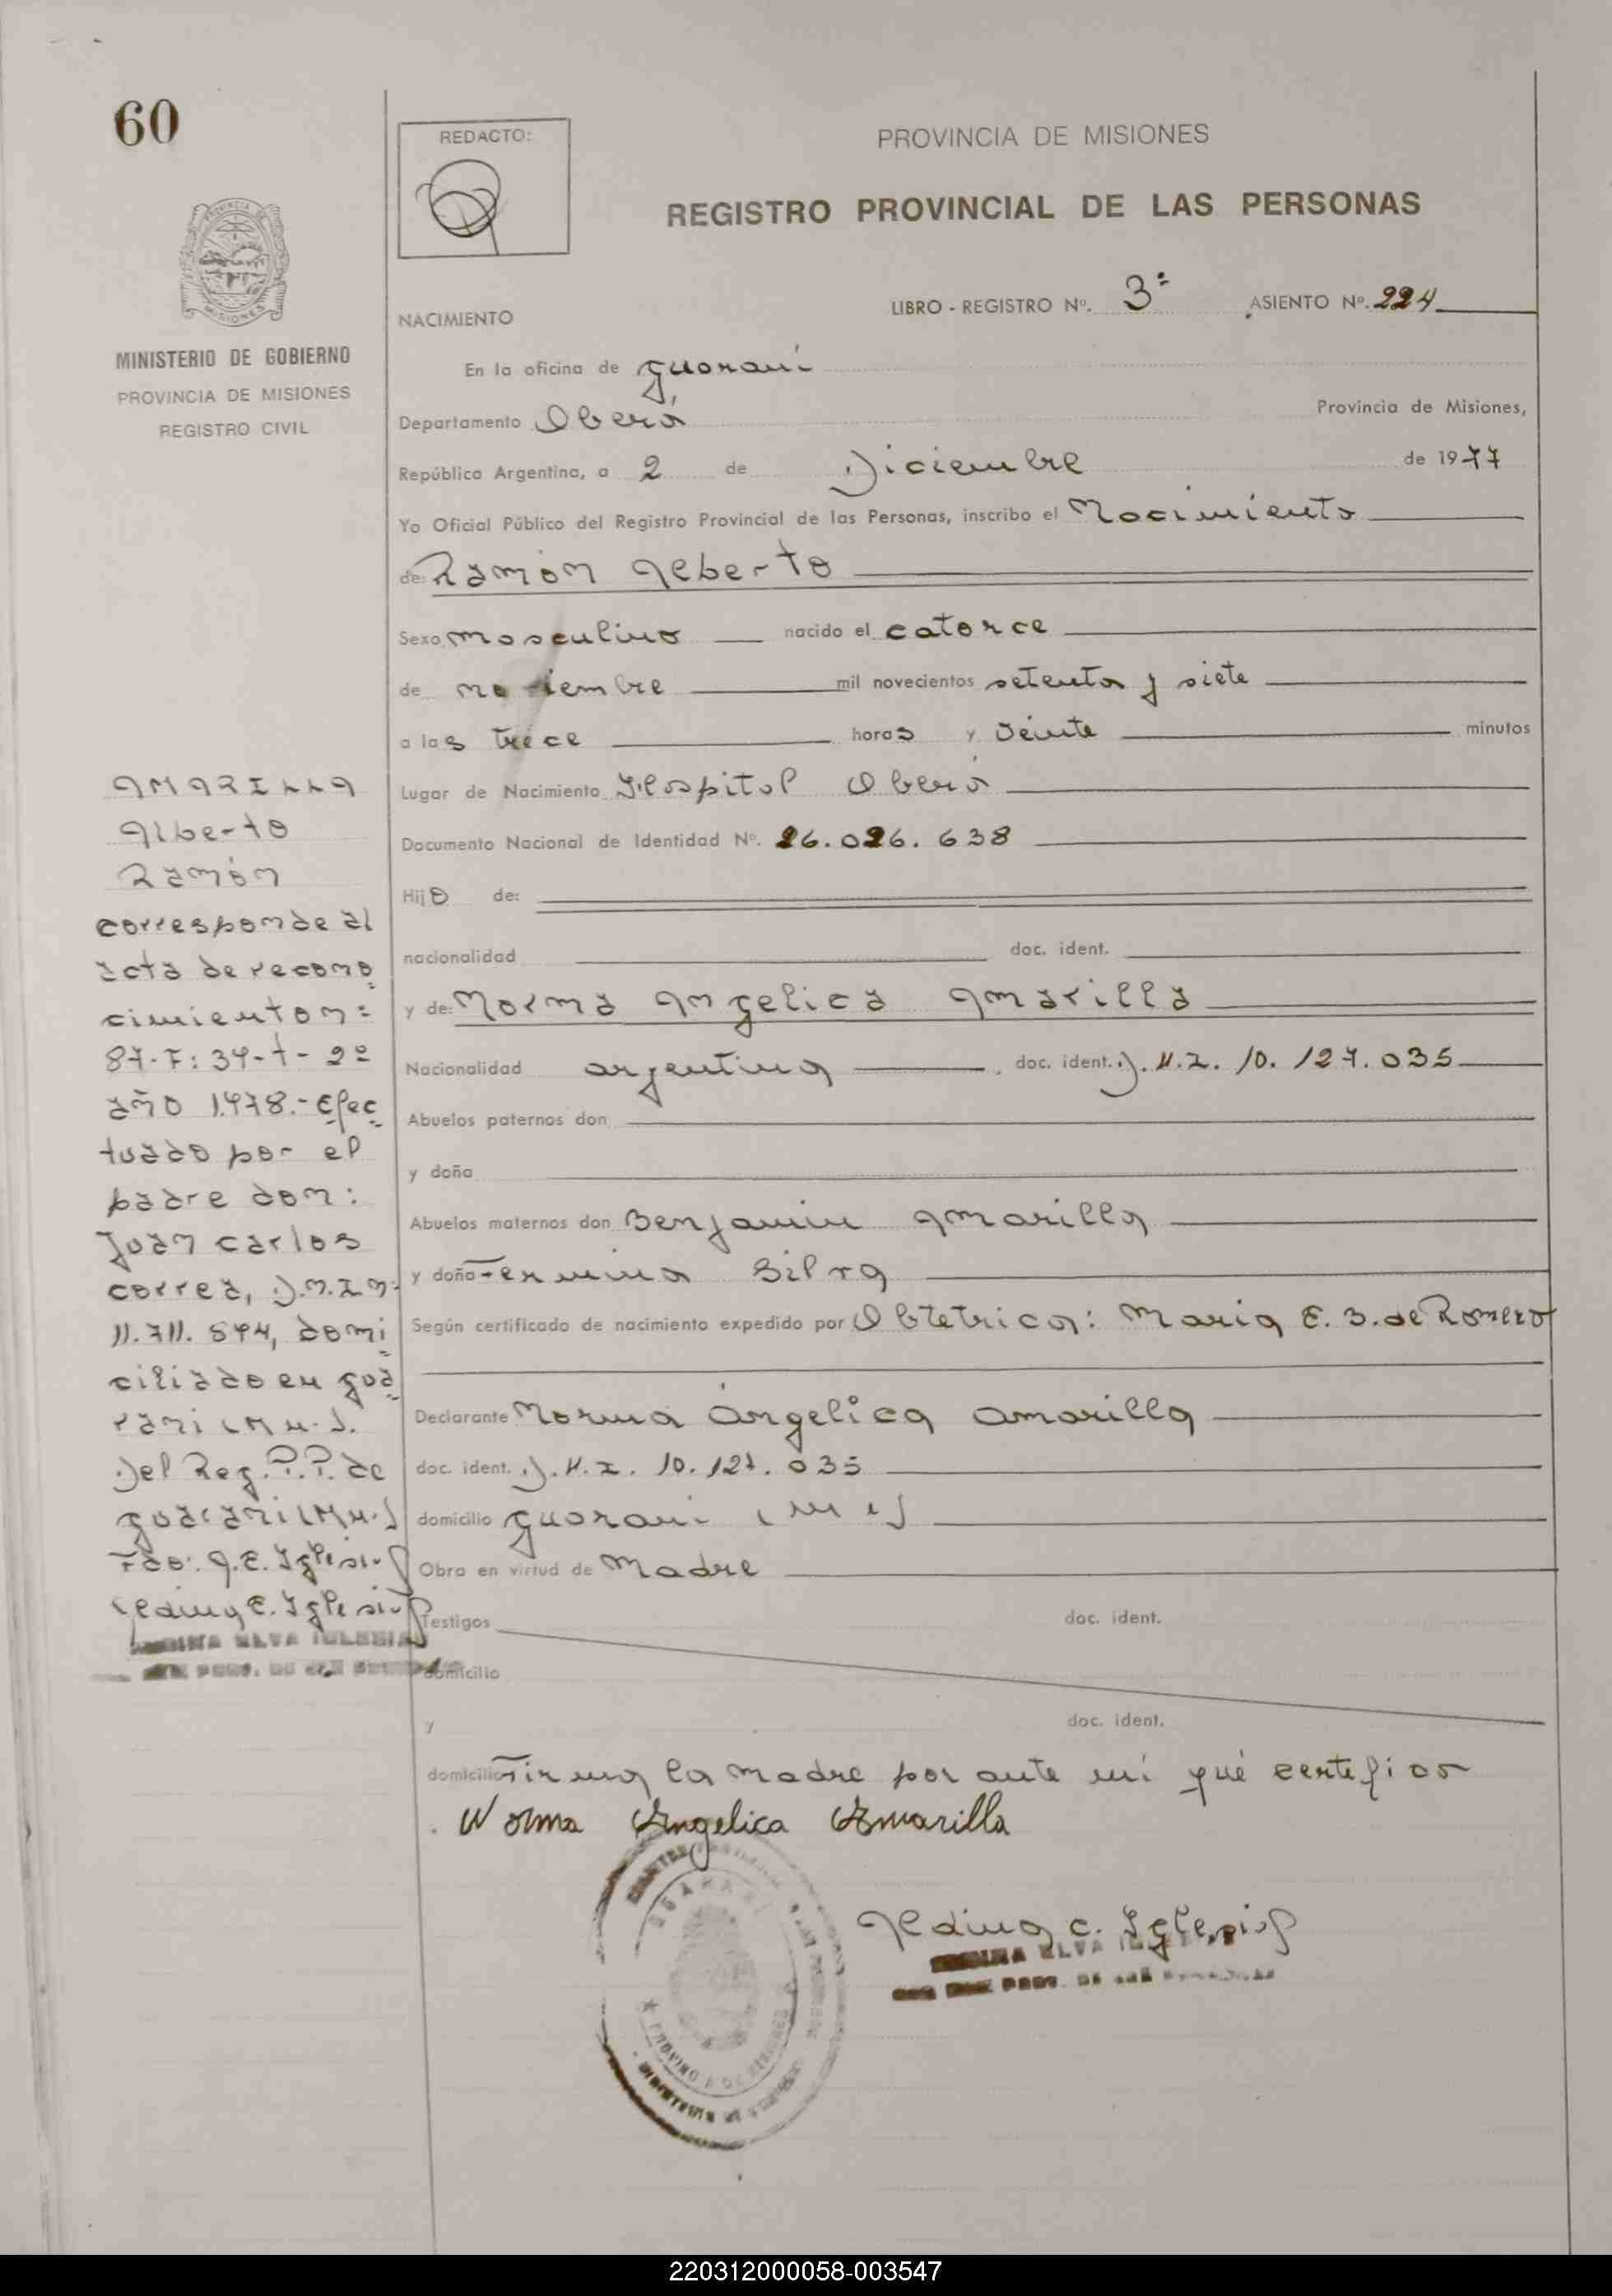 60
REDACTO:
PROVINCIA DE MISIONES
REGISTRO PROVINCIAL DE LAS PERSONAS
LIBRO - REGISTRO Nº. 3º ASIENTO Nº. 224
NACIMIENTO
MINISTERIO DE GOBIERNO
PROVINCIA DE MISIONES
REGISTRO CIVIL
En la oficina de Guarani
Departamento Oberá Provincia de Misiones,
República Argentina, a 2 de Diciembre de 1977
Yo Oficial Público del Registro Provincial de las Personas, inscribo el Nacimiento
de: Ramón Alberto
Sexo masculino nacido el catorce
de noviembre mil novecientos setenta y siete
a las trece horas y veinte minutos
Lugar de Nacimiento Hospital Oberá
Documento Nacional de Identidad Nº. 26.026.638
Hijo de:
nacionalidad doc. ident.
y de: Norma Angelica Amarilla
Nacionalidad argentina doc. ident. D.N.I. 10.127.035
Abuelos paternos don
y doña
Abuelos maternos don Benjamin Amarilla
y doña Fermina Silva
Según certificado de nacimiento expedido por Obtetrica: Maria E. B. de Romero
Declarante Norma Angelica Amarilla
doc. ident. D.N.I. 10.127.035
domicilio Guarani (Mnes)
Obra en virtud de Madre
Testigos doc. ident.
domicilio
y doc. ident.
domicilio Firma la madre por ante mí qué certifico
Norma Angelica Amarilla
AMARILLA
Alberto
Ramón
corresponde al
acta de recono
cimiento n:
87-F: 34-t-2º
año 1.978.- Efec
tuado por el
padre don:
Juan Carlos
Correa, D.N.I n:
11.711.594, domi
ciliado en Gua
rani (Mn.).
Del Reg. P.P. de
Guarani (Mn.)
Fdo: A.E. Iglesias
Aedina E. Iglesias
ELVA IGLESIAS
Aedina E. Iglesias
220312000058-003547